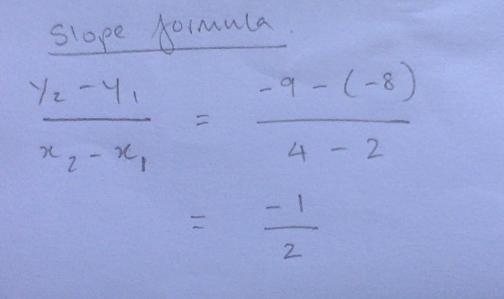 Slope formula.
y₂ - y₁ / x₂ - x₁ = -9 - (-8) / 4 - 2
= -1 / 2